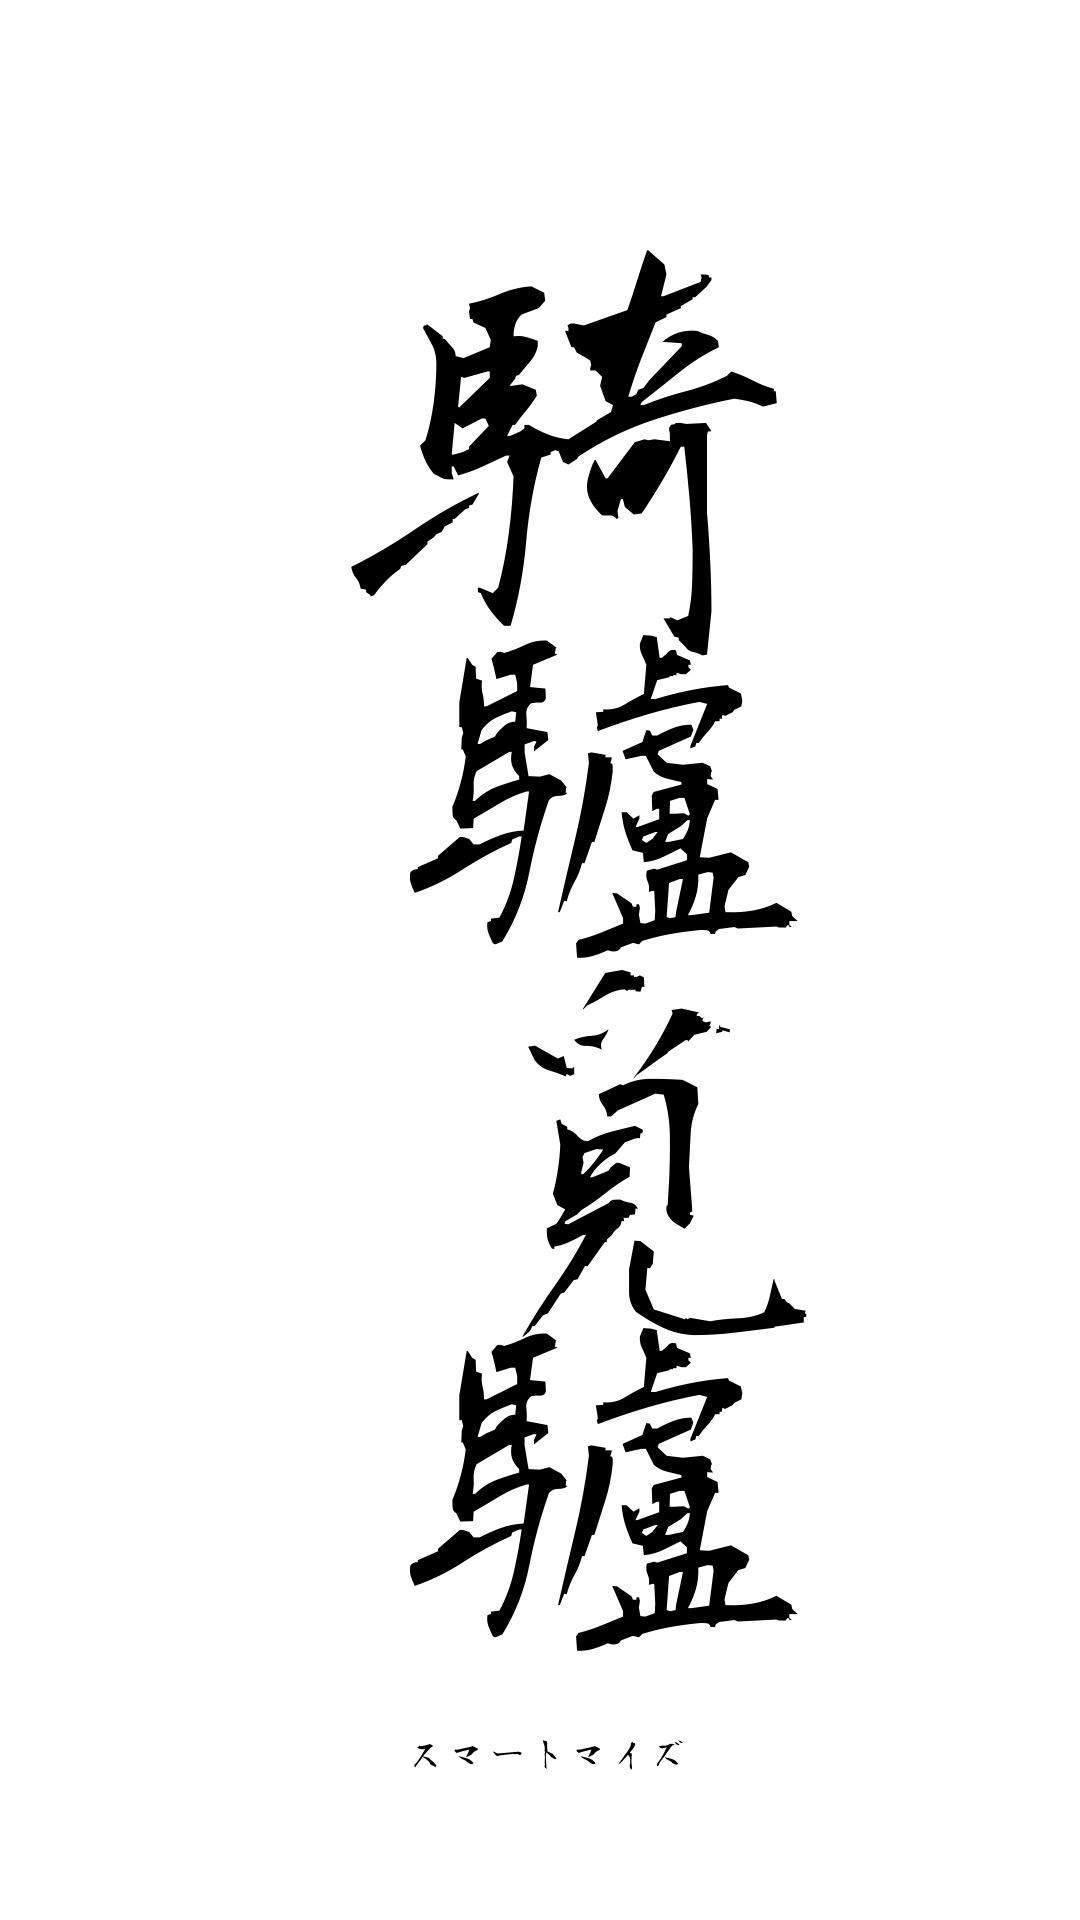 騎驢覓驢
スマートマイズ